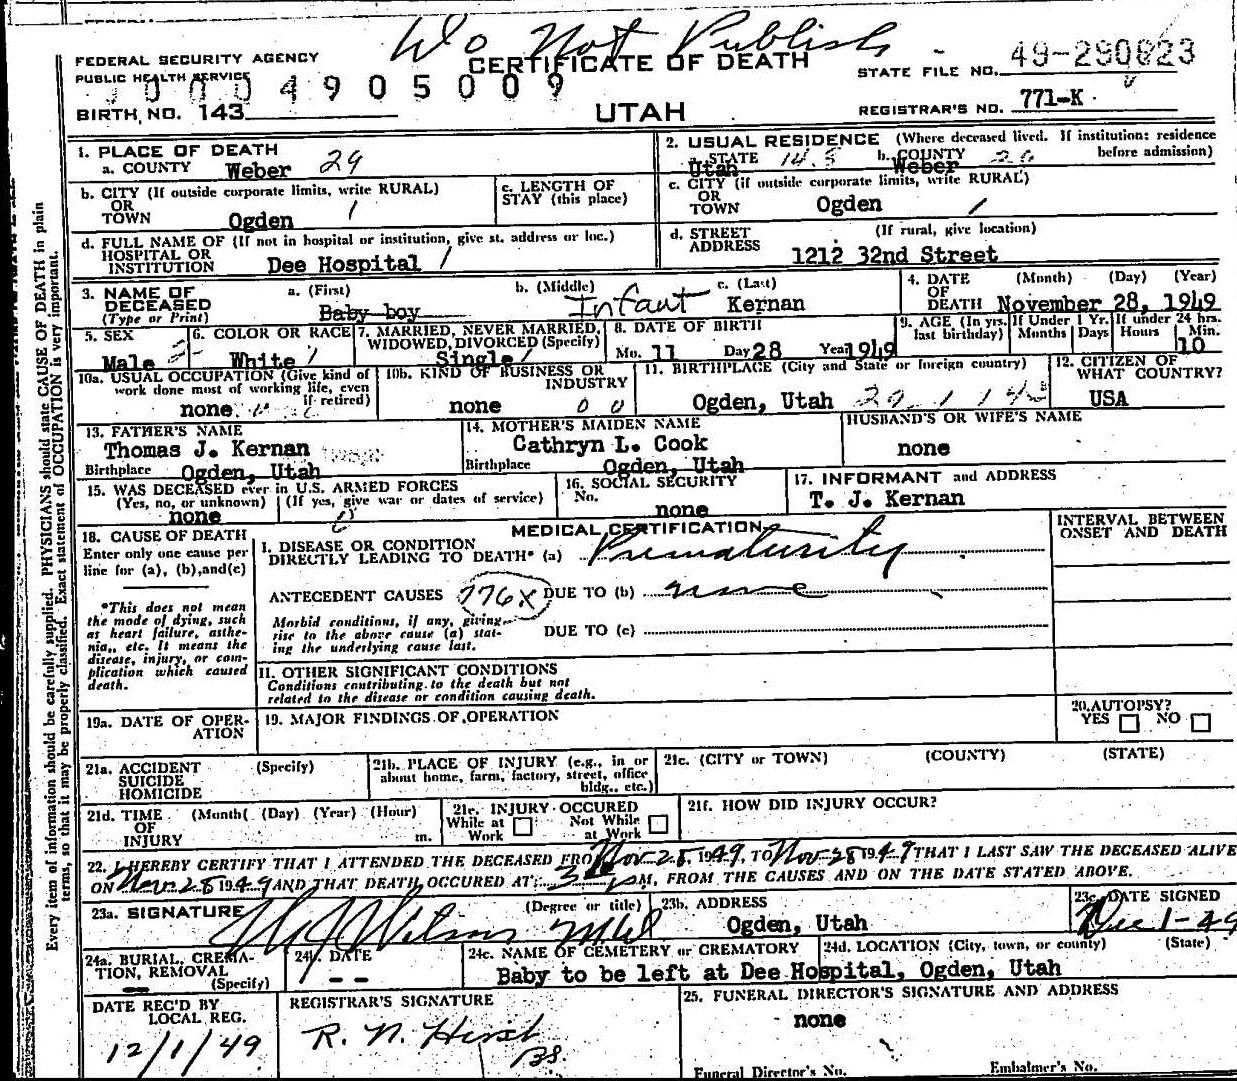 Do Not Publish
FEDERAL SECURITY AGENCY
PUBLIC HEALTH SERVICE
CERTIFICATE OF DEATH
STATE FILE NO. 49-290823
0004905009
BIRTH NO. 143
UTAH
REGISTRAR'S NO. 771-K
1. PLACE OF DEATH
a. COUNTY Weber 29
2. USUAL RESIDENCE (Where deceased lived. If institution: residence before admission)
a. STATE Utah b. COUNTY Weber
b. CITY (If outside corporate limits, write RURAL)
OR
TOWN Ogden 1
c. LENGTH OF
STAY (this place)
c. CITY (if outside corporate limits, write RURAL)
OR
TOWN Ogden 1
d. FULL NAME OF (If not in hospital or institution, give st. address or loc.)
HOSPITAL OR
INSTITUTION Dee Hospital 1
d. STREET (If rural, give location)
ADDRESS 1212 32nd Street
3. NAME OF
DECEASED
(Type or Print)
a. (First) Baby boy
b. (Middle) Infant
c. (Last) Kernan
4. DATE (Month) (Day) (Year)
OF
DEATH November 28, 1949
5. SEX
Male
6. COLOR OR RACE
White
7. MARRIED, NEVER MARRIED,
WIDOWED, DIVORCED (Specify)
Single
8. DATE OF BIRTH
Mo. 11 Day 28 Year 1949
9. AGE (In yrs. last birthday)
If Under 1 Yr.
Months Days
If under 24 hrs.
Hours Min.
10
10a. USUAL OCCUPATION (Give kind of
work done most of working life, even
if retired)
none
10b. KIND OF BUSINESS OR
INDUSTRY
none 0 0
11. BIRTHPLACE (City and State or foreign country)
Ogden, Utah
12. CITIZEN OF
WHAT COUNTRY?
USA
13. FATHER'S NAME
Thomas J. Kernan
Birthplace Ogden, Utah
14. MOTHER'S MAIDEN NAME
Cathryn L. Cook
Birthplace Ogden, Utah
HUSBAND'S OR WIFE'S NAME
none
15. WAS DECEASED ever in U.S. ARMED FORCES
(Yes, no, or unknown) (If yes, give war or dates of service)
none
16. SOCIAL SECURITY
No.
none
17. INFORMANT and ADDRESS
T. J. Kernan
18. CAUSE OF DEATH
Enter only one cause per
line for (a), (b), and (c)
*This does not mean
the mode of dying, such
as heart failure, asthe-
nia,, etc. It means the
disease, injury, or com-
plication which caused
death.
MEDICAL CERTIFICATION
I. DISEASE OR CONDITION
DIRECTLY LEADING TO DEATH* (a) Prematurity
ANTECEDENT CAUSES 776X DUE TO (b) none
Morbid conditions, if any, giving
rise to the above cause (a) stat-
ing the underlying cause last.
DUE TO (c)
II. OTHER SIGNIFICANT CONDITIONS
Conditions contributing to the death but not
related to the disease or condition causing death.
INTERVAL BETWEEN
ONSET AND DEATH
19a. DATE OF OPER-
ATION
19. MAJOR FINDINGS OF OPERATION
20. AUTOPSY?
YES NO
21a. ACCIDENT (Specify)
SUICIDE
HOMICIDE
21b. PLACE OF INJURY (e.g., in or
about home, farm, factory, street, office
bldg., etc.)
21c. (CITY or TOWN) (COUNTY) (STATE)
21d. TIME (Month( (Day) (Year) (Hour)
OF
INJURY m.
21e. INJURY OCCURED
While at Work Not While at Work
21f. HOW DID INJURY OCCUR?
22. I HEREBY CERTIFY THAT I ATTENDED THE DECEASED FROM Nov 28, 1949, TO Nov 28 1949 THAT I LAST SAW THE DECEASED ALIVE
ON Nov 28 1949 AND THAT DEATH OCCURED AT 3 PM, FROM THE CAUSES AND ON THE DATE STATED ABOVE.
23a. SIGNATURE (Degree or title)
Wilson MD
23b. ADDRESS
Ogden, Utah
23c. DATE SIGNED
Dec 1-49
24a. BURIAL, CREMA-
TION, REMOVAL
(Specify)
--
24b. DATE
--
24c. NAME OF CEMETERY or CREMATORY
24d. LOCATION (City, town, or county) (State)
Baby to be left at Dee Hospital, Ogden, Utah
DATE REC'D BY
LOCAL REG.
12/1/49
REGISTRAR'S SIGNATURE
R. N. Hirst
BS.
25. FUNERAL DIRECTOR'S SIGNATURE AND ADDRESS
none
Funeral Director's No. Embalmer's No.
Every item of information should be carefully supplied. PHYSICIANS should state CAUSE OF DEATH in plain
terms, so that it may be properly classified. Exact statement of OCCUPATION is very important.